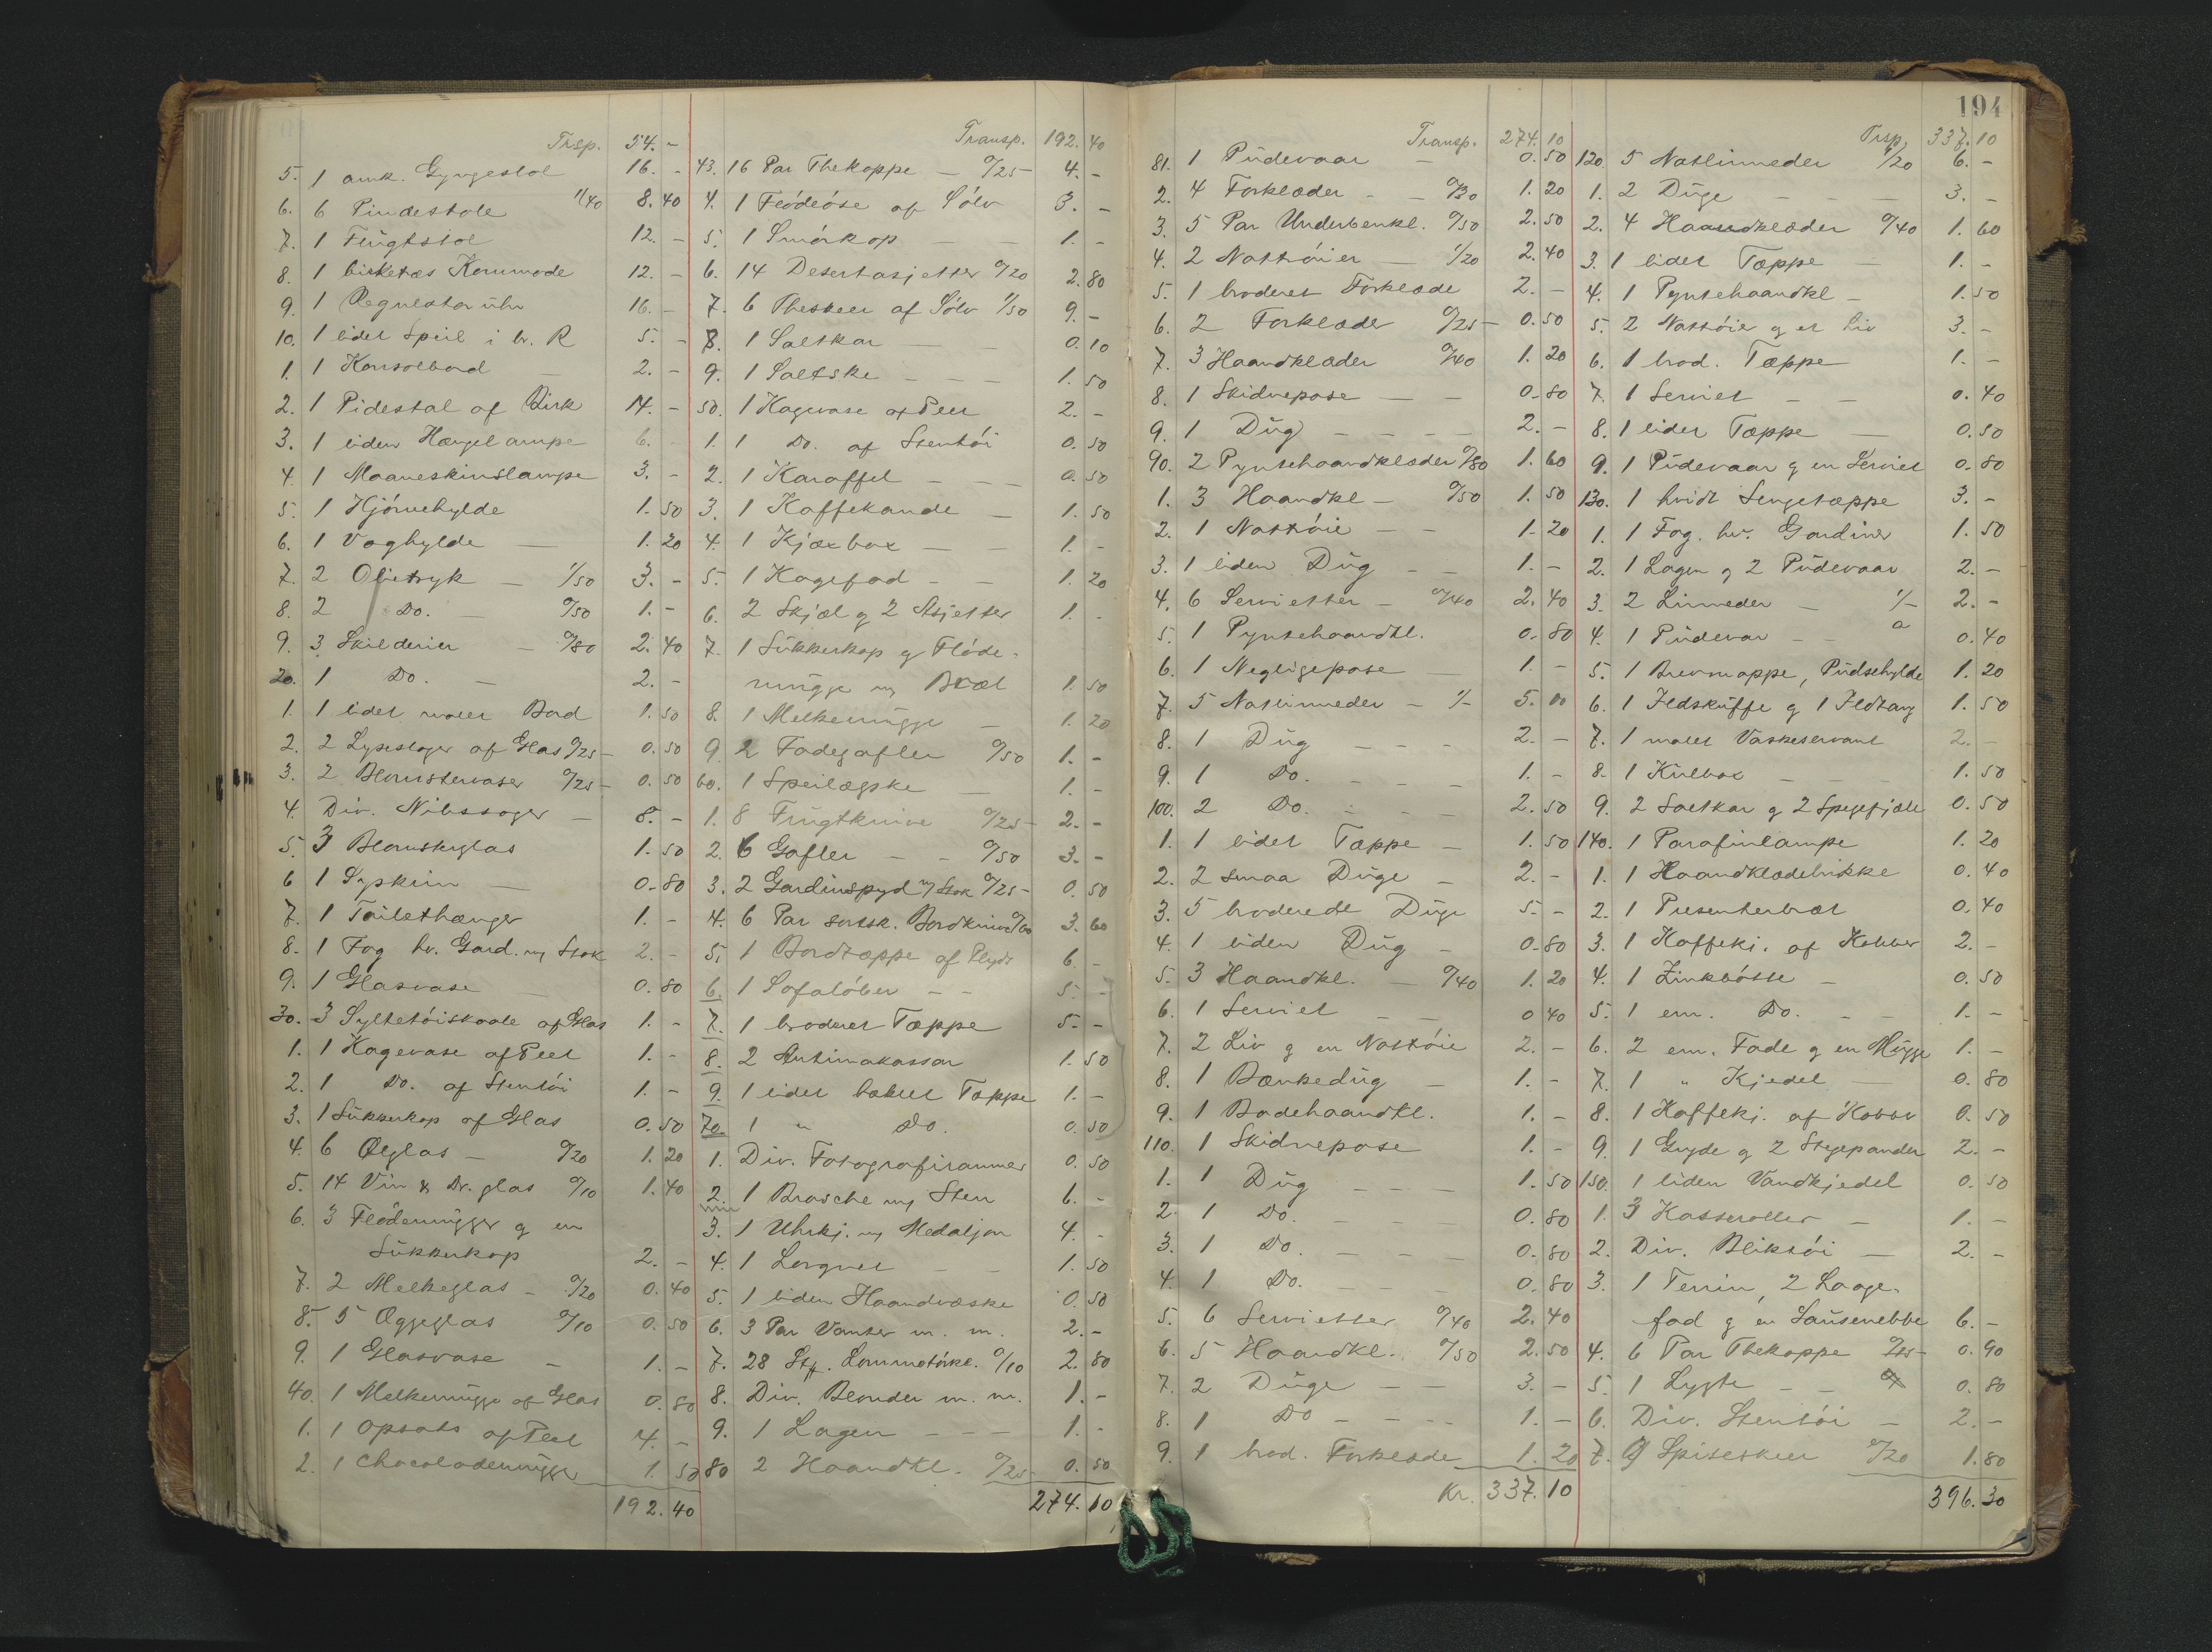 Trsp. 54. -
5. 1 amk. Gyngestol 16. -
6. 6 Pindestole 1/40 8.40
7. 1 Flugtstol 12. -
8. 1 birketræs Kommode 12. -
9. 1 Regulator uhr 16. -
10. 1 lidet Speil i br. R 5. -
1. 1 Konsolbord - 2. -
2. 1 Pidestal af Birk 14. -
3. 1 liden Hængelampe 6. -
4. 1 Maaneskinslampe 3. -
5. 1 Hjörnehylde 1.50
6. 1 Væghylde - 1.20
7. 2 Olietryk - 1/50 3. -
8. 2 Do. - 0/50 1. -
9. 3 Skilderier - 0/80 2.40
20. 1 Do. - 2. -
1. 1 lidet malet Bord 1.50
2. 2 Lysestager af Glas 0/25 - 0.50
3. 2 Blomstervaser 0/25 - 0.50
4. Div. Nibssager - 8. -
5. 3 Blomsterglas 1.50
6 1 Syskrin - 0.80
7. 1 Toilethænger 1. -
8. 1 Fag hv. Gard. m/ Stok 2. -
9. 1 Glasvase - 0.80
30. 3 Syltetöiskaale af Glas 1. -
1. 1 Kagevase af Plet 1. -
2. 1 Do. af Stentöi 1. -
3. 1 Sukkerkop af Glas 0.50
4. 6 Ølglas - 0/20 1.20
5. 14 Vin & Dr. glas 0/10 1.40
6. 3 Flödemugger og en
Sukkerkop 2. -
7. 2 Melkeglas - 0/20 0.40
8. 5 Æggeglas 0/10 0.50
9. 1 Glasvase - 1. -
40. 1 Melkemugge af Glas 0.80
1. 1 Opsats af Plet 4. -
2. 1 Chocolademugge 1.50
192.40
Transp. 192.40
43. 16 Par Thekoppe - 0/25 - 4. -
4. 1 Flödeöse af Sölv 3. -
5. 1 Smörkop - - 1. -
6. 14 Desertasjetter 0/20 2.80
7. 6 Theskeer af Sölv 1/50 9. -
8. 1 Saltkar - 0.10
9. 1 Saltske - - - 1.50
50. 1 Kagevase af Plet 2. -
1. 1 Do. af Stentöi 0.50
2. 1 Karaffel - - - 0.50
3. 1 Kaffekande - 1.50
4. 1 Kjæxbox - - 1. -
5. 1 Kagefad - - 1.20
6. 2 Skjæl og 2 Asjetter 1. -
7. 1 Sukkerkop og Flöde-
mugge m/ Bræt 1.50
8. 1 Melkemugge - 1.20
9. 2 Fadegafler 0/50 1. -
60. 1 Speilægske - 1. -
1. 8 Frugtknive 0/25 - 2. -
2. 6 Gafler - - 0/50 3. -
3. 2 Gardinspyd m/ Stok 0/25 - 0.50
4. 6 Par sortsk. Bordknive 0/60 3.60
5. 1 Bordtæppe af Plyds 6. -
6. 1 Sofalöber - - 5. -
7. 1 broderet Tæppe 5. -
8. 2 Antimakassar 1.50
9. 1 lidet hæklet Tæppe 1. -
70. 1 " Do. 0.50
1. Div. Fotografirammer 0.50
2. 1 Brosche m/ Sten 6. -
3. 1 Uhrkj. m/ Medaljon 4. -
4. 1 Lorgnet - - 1.50
5. 1 liden Haandvæske 0.50
6. 3 Par Vanter m. m. 2. -
7. 28 Stk. Lommetörkl. 0/10 2.80
8. Div. Blonder m. m. 1. -
9. 1 Lagen - - - 1. -
80 2 Haandkl. 0/25 - 0.50
274.10
Transp. 274.10
81. 1 Pudevaar - 0.50
2. 4 Forklæder - - 0/30 1.20
3. 5 Par Underbenkl. 0/50 2.50
4. 2 Nattröier - 1/20 2.40
5. 1 broderet Forklæde 2. -
6. 2 Forklæder 0/25 - 0.50
7. 3 Haandklæder 0/40 1.20
8. 1 Skidnepose - - 0.80
9. 1 Dug - - - - 2. -
90. 2 Pyntehaandklæder 0/80 1.60
1. 3 Haandkl - 0/50 1.50
2. 1 Nattröie - - 1.20
3. 1 liden Dug - - 1. -
4. 6 Servietter - 0/40 2.40
5. 1 Pyntehaandkl. 0.80
6. 1 Negligepose - 1. -
7. 5 Natlinneder - 1/- 5.00
8. 1 Dug - - - 2. -
9. 1 Do. - - - 1. -
100. 2 Do. - - - 2.50
1. 1 lidet Tæppe - 1.50
2. 2 smaa Duge - 2. -
3. 5 broderede Duge 5. -
4. 1 liden Dug - 0.80
5. 3 Haandkl. - 0/40 1.20
6. 1 Serviet - - 0 40
7. 2 Liv og en Nattröie 2. -
8. 1 Bænkedug - 1. -
9. 1 Badehaandkl. 1. -
110. 1 Skidnepose 1. -
1. 1 Dug - - - 1.50
2. 1 Do. - - - 0.80
3. 1 Do. - - - 0.80
4. 1 Do. - - - 0.80
5. 6 Servietter 0/40 2.40
6. 5 Haandkl. 0/50 2.50
7. 2 Duge - - 3. -
8. 1 Do - - - - 1. -
9. 1 brod. Forklæde 1.20
Kr. 337.10
194
Trsp. 337.10
120 5 Natlinneder 1/20 6. -
1. 2 Duge - - - 3. -
2. 4 Haandklæder 0/40 1.60
3. 1 lidet Tæppe - 1. -
4. 1 Pyntehaandkl - 1.50
5. 2 Nattöie og et Liv 3. -
6. 1 brod. Tæppe 1. -
7. 1 Serviet - - 0.40
8. 1 lidet Tæppe - 0.50
9. 1 Pudevaar og en Serviet 0.80
130. 1 hvidt Sengetæppe 3. -
1. 1 Fag. hv. Gardiner 1.50
2. 1 Lagen og 2 Pudevaar 2. -
3. 2 Linneder - 1/- 2. -
4. 1 Pudevar - - a 0.40
5. 1 Brevmappe, Pudsehylde 1.20
6. 1 Ildskuffe og 1 Ildtang 1.50
7. 1 malet Vaskeservant 2. -
8. 1 Kulbox - - - 1.50
9. 2 Saltkar og 2 Spegefjæle 0.50
140. 1 Parafinlampe 1.20
1. 1 Haandklædebrikke 0.40
2. 1 Presenterbræt 0.40
3. 1 Kaffekj. af Kobber 2. -
4. 1 Zinkbötte - 0.50
5. 1 em. Do. - - 1. -
6. 2 em. Fade og en Mugge 1. -
7. 1 " Kjedel - 0.80
8. 1 Kaffekj. af Kobber 0.50
9. 1 Gryde og 2 Stegepander 2. -
150. 1 liden Vandkjedel 0.50
1. 3 Kasseroller - 1. -
2. Div. Bliktöi - 2. -
3. 1 Terrin, 2 Laage-
fad og en Sausenebbe 6. -
4. 6 Par Thekoppe 0/25 - 0.90
5. 1 Lygte - - 0.80
6. Div. Stentöi - 2. -
7. 9 Spiseskeer 0/20 1.80
396.30